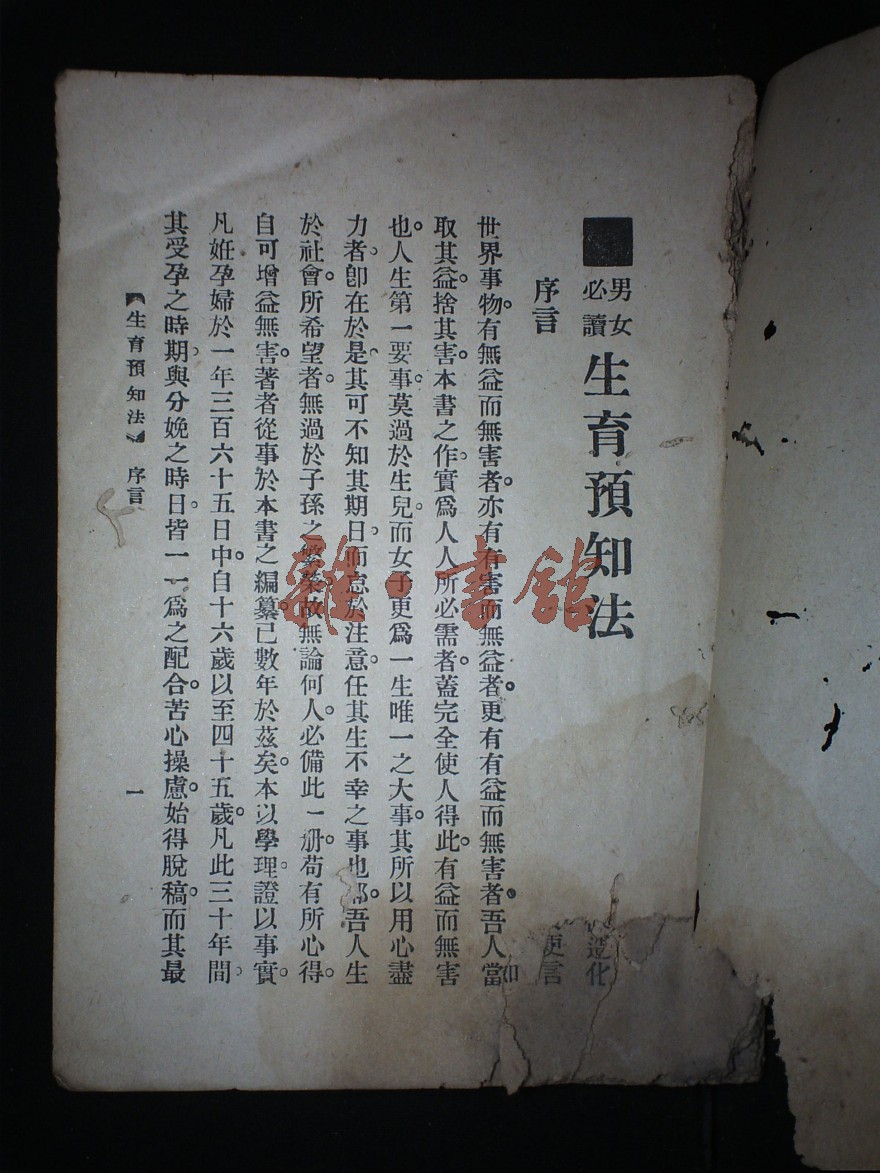 男女
必讀
生育預知法
序言
世界事物。有無益而無害者。亦有有害而無益者。更有有益而無害者。吾人當
取其益。捨其害。本書之作。實爲人人所必需者。蓋完全使人得此。有益而無害
也。人生第一要事。莫過於生兒。而女子更爲一生唯一之大事。其所以用心盡
力者。卽在於是。其可不知其期日。而怠於注意。任其生不幸之事也。吾人生
於社會。所希望者。無過於子孫之繁榮。故無論何人。必備此一册。苟有所心得。
自可增益無害。著者從事於本書之編纂。已數年於茲矣。本以學理。證以事實。
凡姙孕婦於一年三百六十五日中。自十六歲以至四十五歲。凡此三十年間。
其受孕之時期。與分娩之時日。皆一一爲之配合。苦心操慮。始得脫稿。而其最
【生育預知法】 序言
一
造化
更言
雜·書館